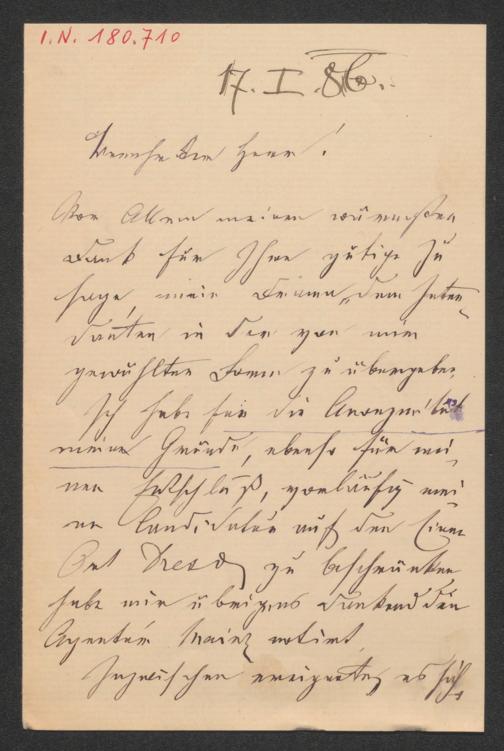 I.N. 180.710
17. I. 86.
Verehrter Herr!
Vor Allem meinen wärmsten
Dank für Ihre gütige Zu
sage, mein Drama, dem Inten
danten in der von mir
gewählten Form zu übergeben.
Ich habe für die Anonymität
meine Gründe, ebenso für mei
nen Entschluß, vorläufig mei
ne Candidatur auf den Einen
Ort Dresden zu beschränken
habe mir übrigens dankend den
Agenten Mainz notirt
Inzwischen ereignete es sich